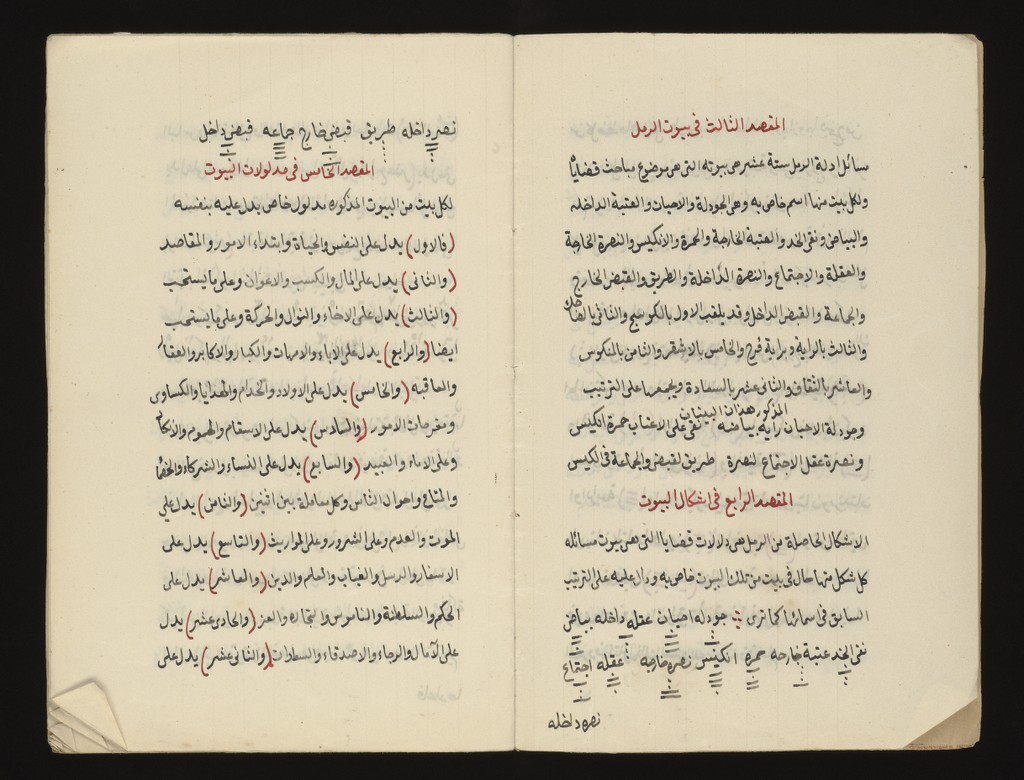 المقصد الثالث فى بيوت الرمل
مسائل ادلة الرمل ستة عشر هى بيوته التى هى موضوع مباحث قضاياه
ولكل بيت منها اسم خاص به وهى الجودلة والاحيان والعتبة الداخله
والبياض ونقى الخد والعتبة الخارجة والحمرة والانكيس والنصرة الخارجة
والعقلة والاجتماع والنصرة الداخلة والطريق والقبض الخارج
والجماعة والقبض الداخل وقد يلقب الاول بالكوسج والثانى بالضاحك
والثالث بالراية وبراية فرح والخامس بالاشقر والثامن بالمنكوس
والعاشر بالثقاف والثانى عشر بالسعادة ويجمعها على الترتيب
المذكور هذان البيتان
وجودلة الاحيان راية بياضه نقى على الاعتاب حمرة انكيس
ونصرة عقل الاجتماع لنصرة طريق لقبض والجماعة فالكيس
المقصد الرابع فى اشكال البيوت
الاشكال الحاصلة من الرمل هى دلالات قضايا التى هى بيوت مسائله
كل شكل منها حال فى بيت من تلك البيوت خاص به ودال عليه على الترتيب
السابق فى اسمائها كما ترى جودله احيان عتبه داخله بياض
نقى الخد عتبة خارجه حمره انكيس نصره خارجه عقله اجتماع
نصره داخله
نصره داخله طريق قبض خارج جماعه قبض داخل
المقصد الخامس فى مدلولات البيوت
لكل بيت من البيوت المذكوره مدلول خاص يدل عليه بنفسه
(فالاول) يدل على النفس والحياة وابتداء الامور والمقاصد
(والثانى) يدل على المال والكسب والاعوان وعلى ما يستحب
(والثالث) يدل على الاخاء والنوال والحركة وعلى ما يستحب
ايضا (والرابع) يدل على الاباء والامهات والكبار والاكابر والعقار
والعاقبه (والخامس) يدل على الاولاد والخدام والهدايا والكساوى
ومفرحات الامور (والسادس) يدل على الاسقام والهموم والانكاد
وعلى الاماء والعبيد (والسابع) يدل على النساء والشركاء والخصماء
والمتاع واحوال الناس وكل معاملة بين اثنين (والثامن) يدل على
الموت والعدم وعلى الشرور وعلى المواريث (والتاسع) يدل على
الاسفار والرسل والغياب والعلم والدين (والعاشر) يدل على
الحكم والسلطنة والناموس والتجاره والعز (والحادى عشر) يدل
على الآمال والرجاء والاصدقاء والسعادات (والثانى عشر) يدل على